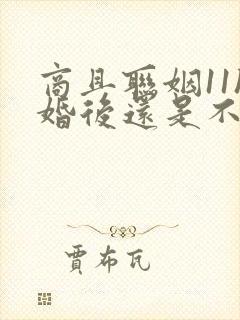 商且聯姻11
婚後還是不
賈布瓦